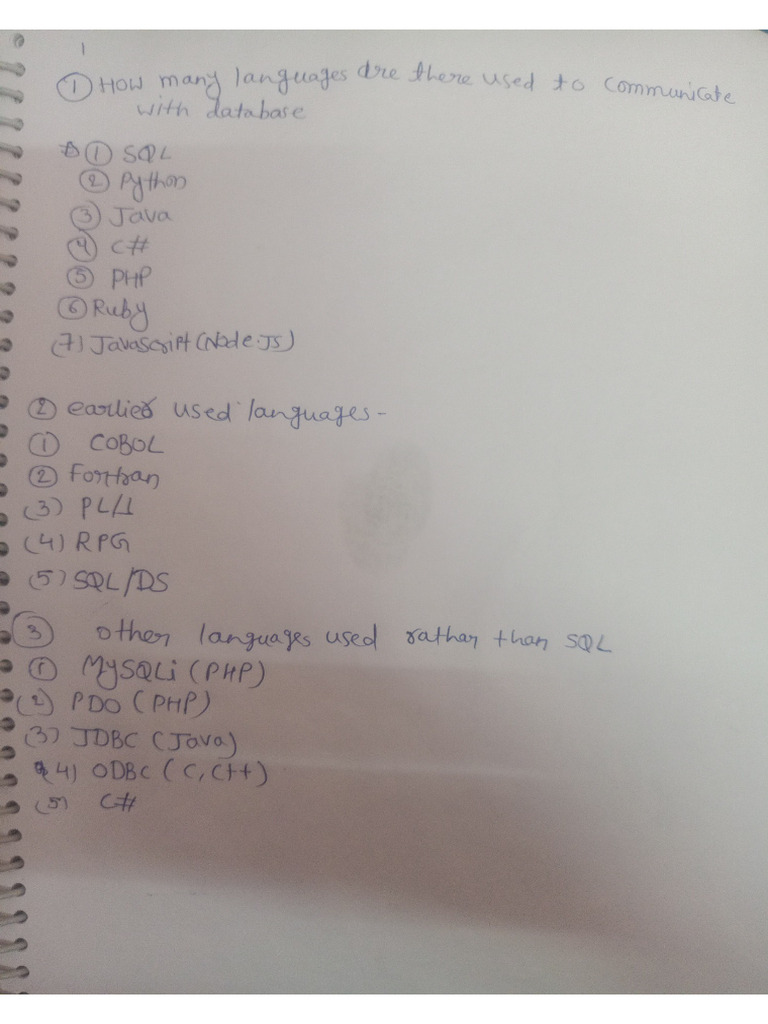 1
① How many languages are there used to communicate
with database
① SQL
② Python
③ Java
④ C#
⑤ PHP
⑥ Ruby
(7) Javascript (Node.JS)
② earlier used languages -
① COBOL
② Fortran
(3) PL/1
(4) RPG
(5) SQL/DS
③ other languages used rathar than SQL
① MySQLi (PHP)
(2) PDO (PHP)
(3) JDBC (Java)
(4) ODBC (C, C++)
(5) C#